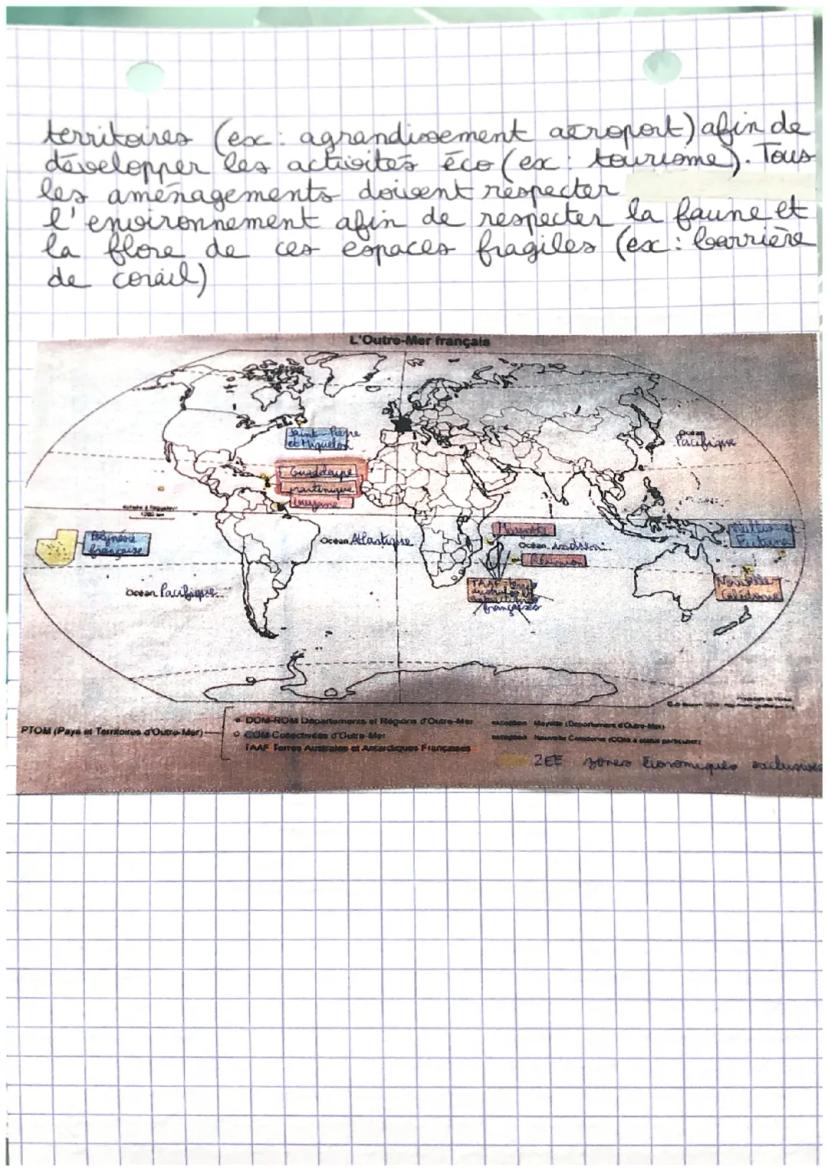 territoires (ex : agrandissement aéroport) afin de
développer les activités éco (ex : tourisme). Tous
les aménagements doivent respecter
l'environnement afin de respecter la faune et
la flore de ces espaces fragiles (ex : barrière
de corail)
L'Outre-Mer français
Saint-Pierre
et Miquelon
Océan
Pacifique
Guadeloupe
Martinique
Guyane
Polynésie
française
Océan Atlantique
Mayotte
Océan Indien
Réunion
Wallis et
Futuna
Océan Pacifique
TAAF
françaises
Nouvelle
Calédonie
PTOM (Pays et Territoires d'Outre-Mer)
DOM-ROM Départements et Régions d'Outre-Mer
exception Mayotte (Département d'Outre-Mer)
COM Collectivités d'Outre-Mer
exception Nouvelle Calédonie (COM à statut particulier)
TAAF Terres Australes et Antarctiques Françaises
ZEE zones économiques exclusives